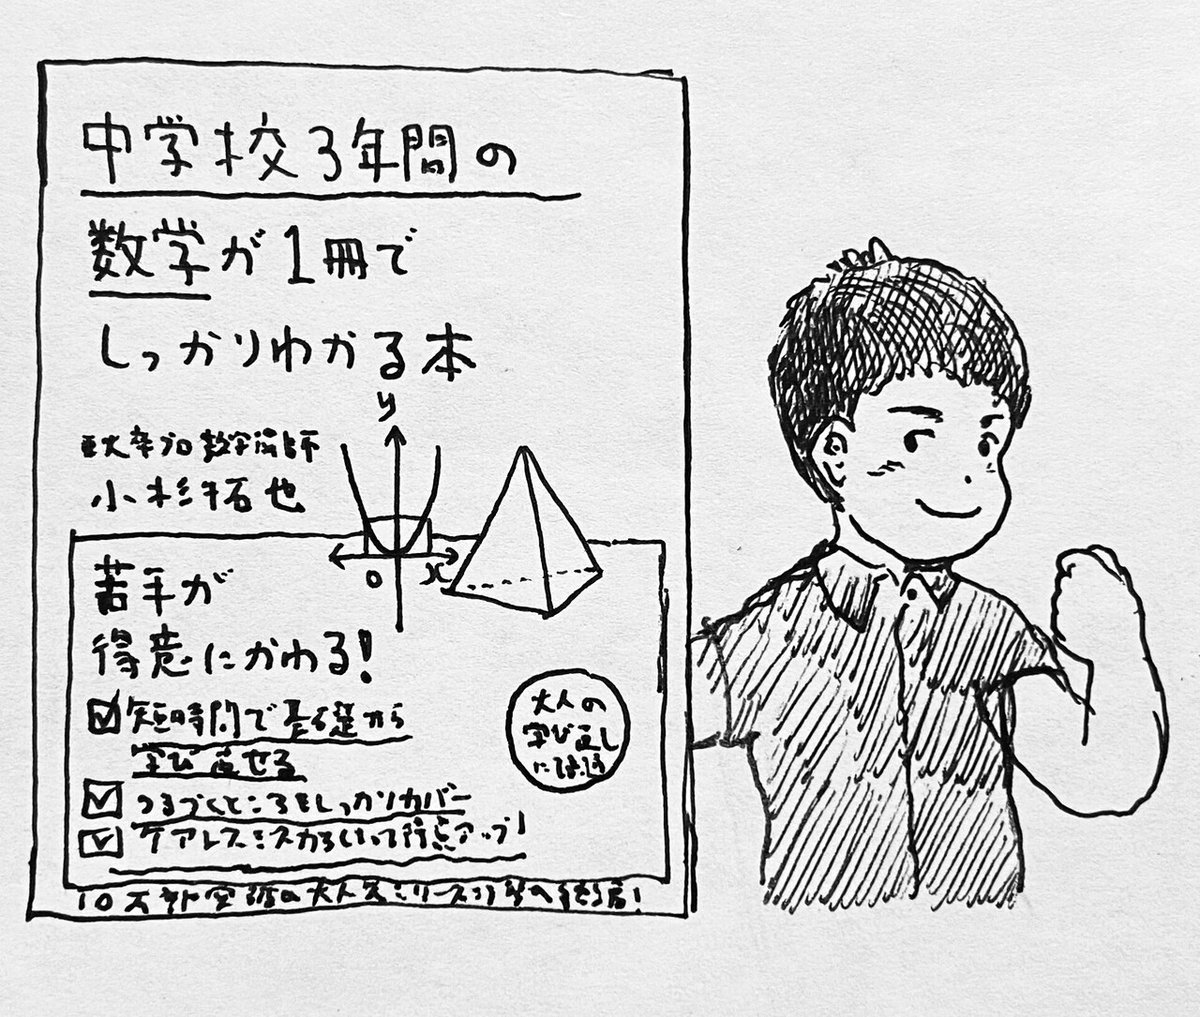 中学校3年間の
数学が1冊で
しっかりわかる本
東大卒プロ数学講師
小杉拓也
y
0
x
苦手が
得意にかわる!
短時間で基礎から
学び直せる
つまづくところもしっかりカバー
ケアレスミスが
得点アップ!
大人の
学び直し
に
10万部突破の大人気シリーズ